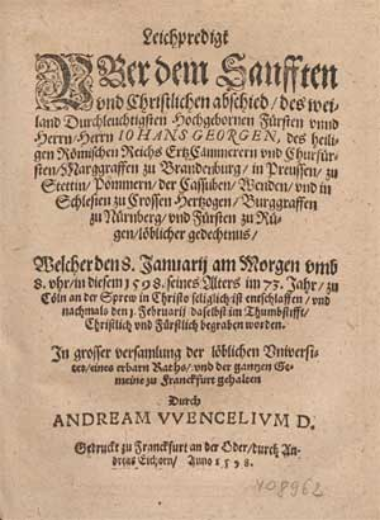 Leichpredigt
VBer dem Sanfften
vnd Christlichen abschied/ des wei-
land Durchleuchtigsten Hochgebornen Fürsten vnnd
Herrn/Herrn IOHANS GEORGEN, des heili-
gen Römischen Reichs ErtzCämmerern vnd Churfür-
sten/Marggraffen zu Brandenburg/ in Preussen/ zu
Stettin/ Pommern/ der Cassuben/ Wenden/ vnd in
Schlesien zu Crossen Hertzogen/ Burggraffen
zu Nürnberg/ vnd Fürsten zu Rü-
gen/löblicher gedechtnus/
Welcher den 8. Januarij am Morgen vmb
8. vhr/in diesem 1598. seines Alters im 73. Jahr/ zu
Cöln an der Sprew in Christo seliglich ist entschlaffen/ vnd
nachmals den 1. Februarij daselbst im Thumbstifft/
Christlich vnd Fürstlich begraben worden.
In grosser versamlung der löblichen Vniversi-
tet/eines erbarn Raths/ vnd der gantzen Ge-
meine zu Franckfurt gehalten
Durch
ANDREAM VVENCELIVM D.
Gedruckt zu Franckfurt an der Oder/durch An-
dreas Eichorn/ Anno 1598.
408962